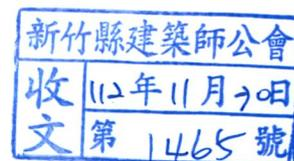 新竹縣建築師公會
收文
112年11月30日
第1465號